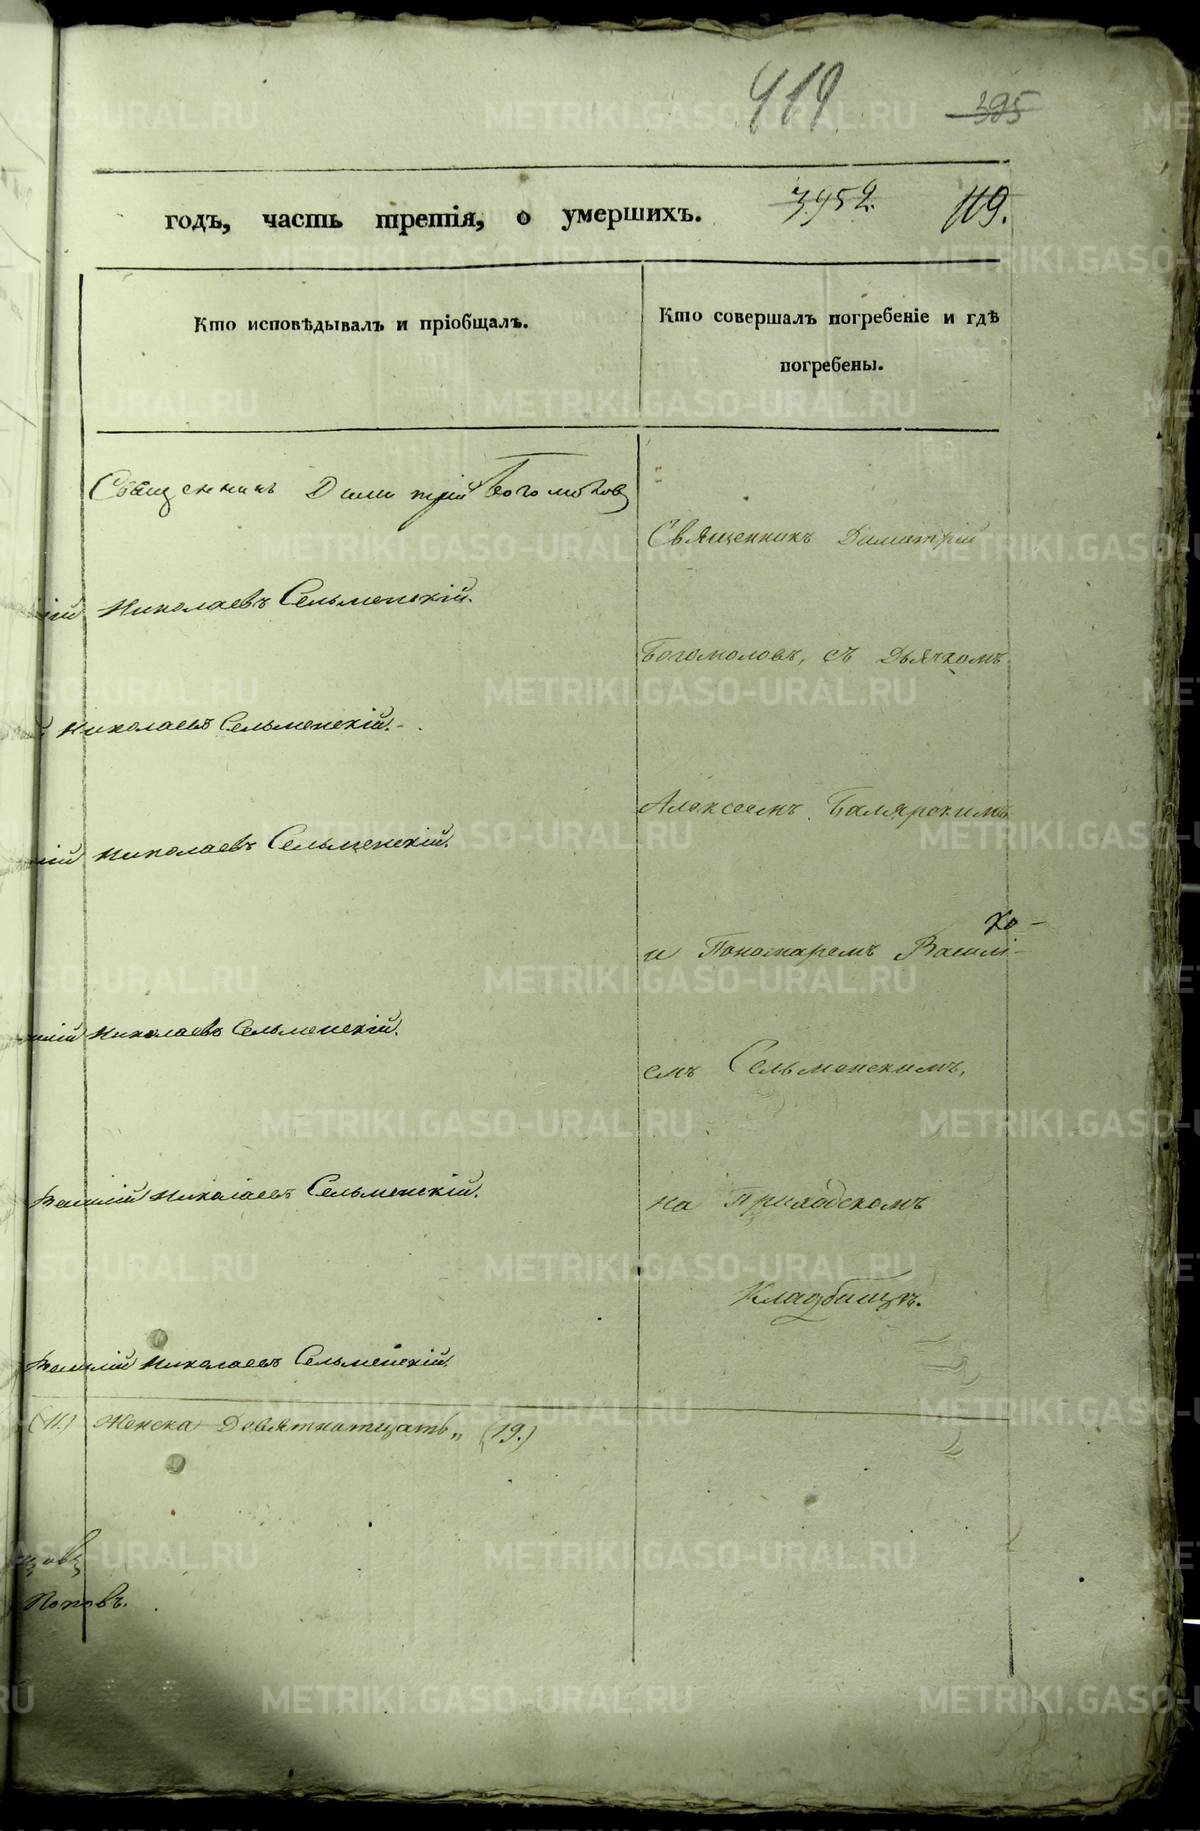 419 395
годъ, часть третія, о умершихъ. 3952. 119.
Кто исповѣдывалъ и пріобщалъ.
Кто совершалъ погребеніе и гдѣ
погребены.
Священникъ Димитрій Богомоловъ
Священникъ Димитрій
ій Николаевъ Сельменскій.
Богомоловъ, съ Дьячкомъ
й Николаевъ Сельменскій.
Алексеемъ Балярскимъ
лій Николаевъ Сельменскій.
и Пономаремъ Василі-
илій Николаевъ Сельменскій.
емъ Сельменскимъ,
Василій Николаевъ Сельменскій.
на Приходскомъ
Кладбищѣ.
Василій Николаевъ Сельменскій.
(11.) Женска Девятнатцать„ (19.)
Поповъ.
METRIKI.GASO-URAL.RU